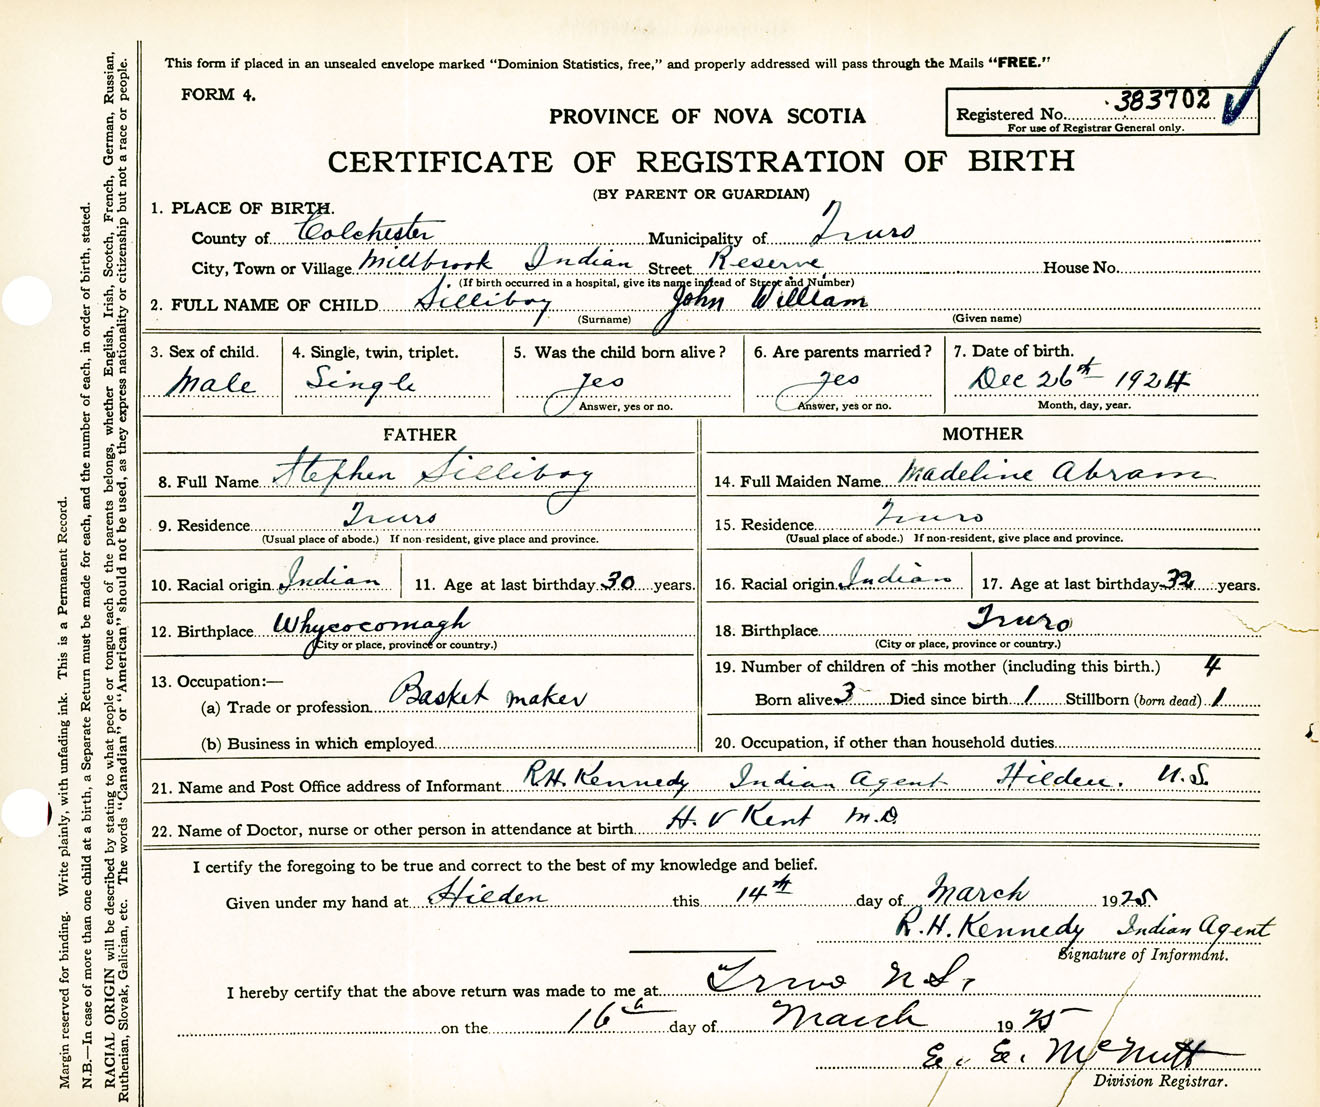 This form if placed in an unsealed envelope marked "Dominion Statistics, free," and properly addressed will pass through the Mails "FREE."
FORM 4.
PROVINCE OF NOVA SCOTIA
Registered No. 383702
For use of Registrar General only.
CERTIFICATE OF REGISTRATION OF BIRTH
(BY PARENT OR GUARDIAN)
1. PLACE OF BIRTH.
County of Colchester Municipality of Truro
City, Town or Village Millbrook Indian Street Reserve House No.
(If birth occurred in a hospital, give its name instead of Street and Number)
2. FULL NAME OF CHILD Silliboy John William
(Surname) (Given name)
3. Sex of child. 4. Single, twin, triplet. 5. Was the child born alive? 6. Are parents married? 7. Date of birth.
Male Single yes yes Dec 26th 1924
Answer, yes or no. Answer, yes or no. Month, day, year.
FATHER MOTHER
8. Full Name Stephen Silliboy 14. Full Maiden Name Madeline Abram
9. Residence Truro 15. Residence Truro
(Usual place of abode.) If non-resident, give place and province. (Usual place of abode.) If non-resident, give place and province.
10. Racial origin Indian 11. Age at last birthday 30 years. 16. Racial origin Indian 17. Age at last birthday 32 years.
12. Birthplace Whycocomagh 18. Birthplace Truro
(City or place, province or country.) (City or place, province or country.)
13. Occupation:— 19. Number of children of this mother (including this birth.) 4
(a) Trade or profession Basket maker Born alive 3 Died since birth 1 Stillborn (born dead) 1
(b) Business in which employed 20. Occupation, if other than household duties
21. Name and Post Office address of Informant R.H. Kennedy Indian Agent Hilden. N.S.
22. Name of Doctor, nurse or other person in attendance at birth H. V Kent M.D.
I certify the foregoing to be true and correct to the best of my knowledge and belief.
Given under my hand at Hilden this 14th day of March 1925.
R.H. Kennedy Indian Agent
Signature of Informant.
I hereby certify that the above return was made to me at Truro N.S.
on the 16th day of March 1925
E. E. McNutt
Division Registrar.
Margin reserved for binding. Write plainly, with unfading ink. This is a Permanent Record.
N.B.—In case of more than one child at a birth, a Separate Return must be made for each, and the number of each, in order of birth, stated.
RACIAL ORIGIN will be described by stating to what people or tongue each of the parents belongs, whether English, Irish, Scotch, French, German, Russian,
Ruthenian, Slovak, Galician, etc. The words "Canadian" or "American" should not be used, as they express nationality or citizenship but not a race or people.